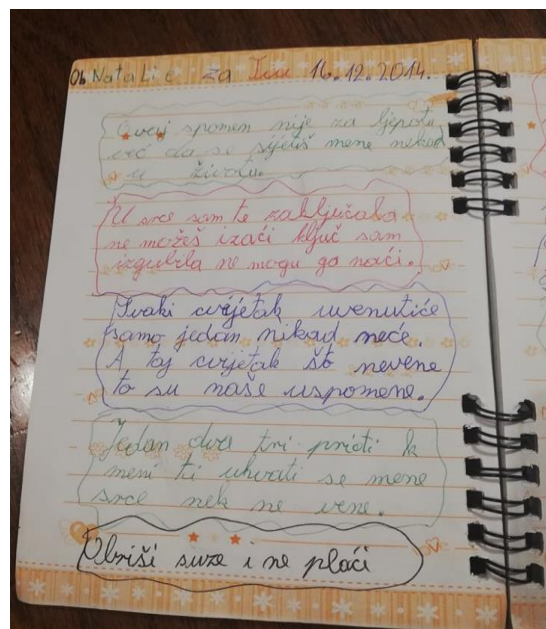 Od Natalie za Ivu 16.12.2014.
Ovaj spomen nije za ljepotu
već da se sjetiš mene nekad
u životu.
U srce sam te zaključala
ne možeš izaći ključ sam
izgubila ne mogu ga naći.
Svaki cvijetak uvenutiće
samo jedan nikad neće
A taj cvijetak što nevene
to su naše uspomene.
Jedan dva tri priđi k
meni ti uhvati se mene
srce nek ne vene.
Obriši suze i ne plači